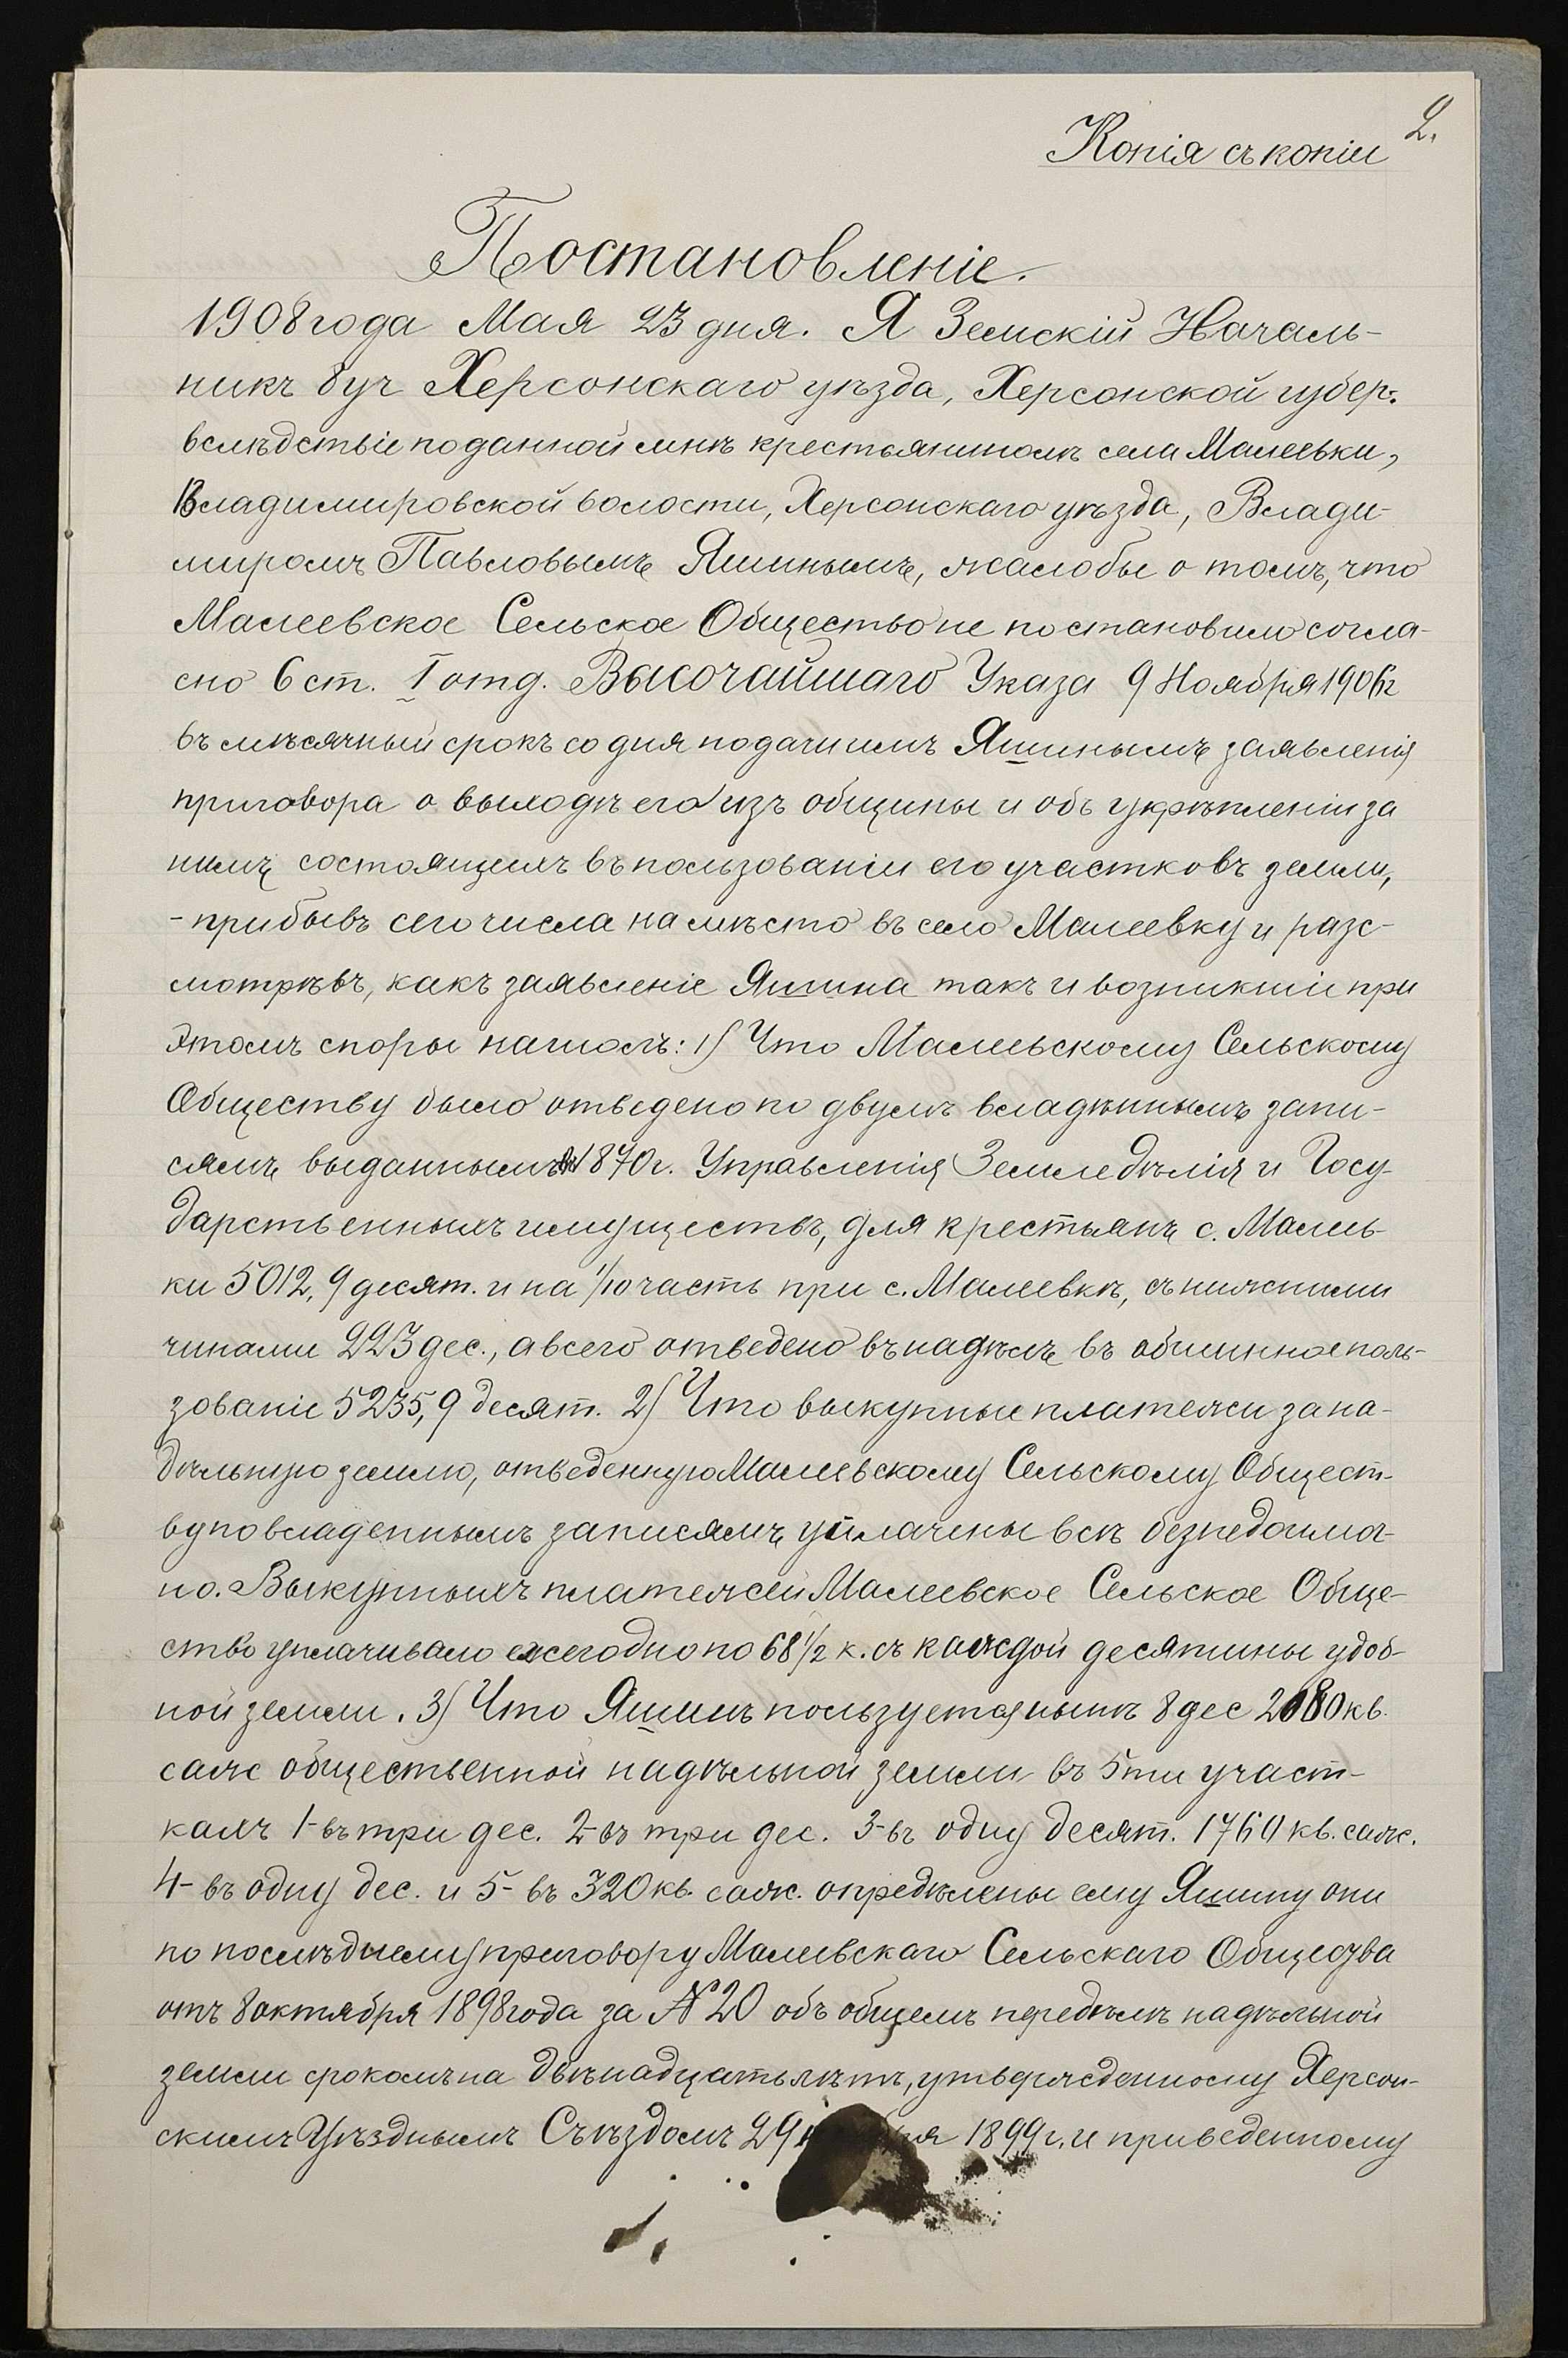 2.
Копія съ копіи
Постановленіе.
1908 года Мая 23 дня. Я Земскій Началь-
никъ 8 уч Херсонскаго уѣзда, Херсонской губер.
вслѣдствіе поданной мнѣ крестьяниномъ села Малеевки,
Владимировской волости, Херсонскаго уѣзда, Влади-
миромъ Павловымъ Яшинымъ, жалобы о томъ, что
Малеевское Сельское Общество не постановило согла-
сно 6 ст. I отд. Высочайшаго Указа 9 Ноября 1906 г
въ мѣсячный срокъ со дня подачи имъ Яшинымъ заявленія
приговора о выходѣ его изъ общины и объ укрѣпленіи за
нимъ состоящихъ въ пользованіи его участковъ земли,
- прибывъ сего числа на мѣсто въ село Малеевку и разс-
мотрѣвъ, какъ заявленіе Яшина такъ и возникшіе при
этомъ споры нашолъ: 1) Что Малеевскому Сельскому
Обществу было отведено по двумъ владѣннымъ запи-
сямъ выданнымъ 1870 г. Управленія Земледѣлія и Госу-
дарственныхъ имуществъ, для крестьянъ с. Малеев-
ки 5012,9 десят. и на 1/10 часть при с. Малеевкѣ, съ нижними
чинами 223 дес., а всего отведено въ надѣлъ въ общинное поль-
зованіе 5235,9 десят. 2) Что выкупные платежи за на-
дѣльную землю, отведенную Малеевскому Сельскому Общест-
ву по владеннымъ записямъ уплачены всѣ безнедоимоч-
но. Выкупныхъ платежей Малеевское Сельское Обще-
ство уплачивало ежегодно по 68 1/2 к. съ каждой десятины удоб-
ной земли. 3) Что Яшинъ пользуется нынѣ 8 дес 2080 кв.
саж общественной надѣльной земли въ 5ти участ-
кахъ 1-въ три дес. 2-въ три дес. 3-въ одну десят. 1760 кв. саж.
4-въ одну дес. и 5-въ 320 кв. саж. опредѣлены ему Яшину они
по послѣднему приговору Малеевскаго Сельскаго Общества
отъ 8 октября 1898 года за № 20 объ общемъ передѣлѣ надѣльной
земли срокомъ на двѣнадцать лѣтъ, утвержденному Херсон-
скимъ Уѣзднымъ Съѣздомъ 29 1899 г. и приведенному